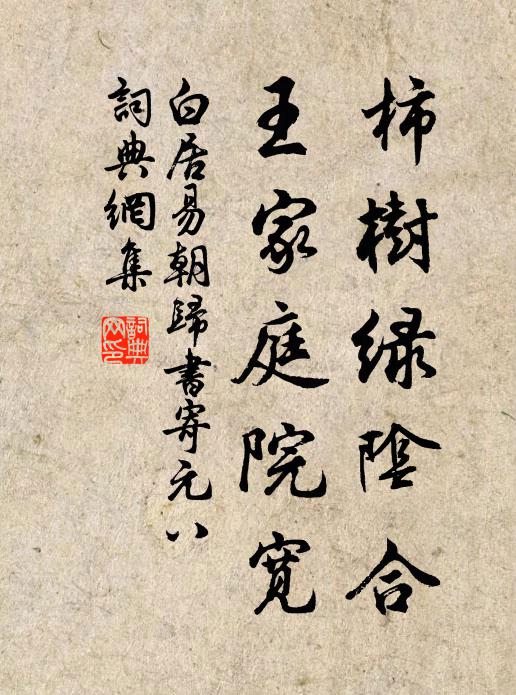 柿樹緑陰合
王家庭院寬
白居易朝歸書寄元八
詞典網集
詞典
网印